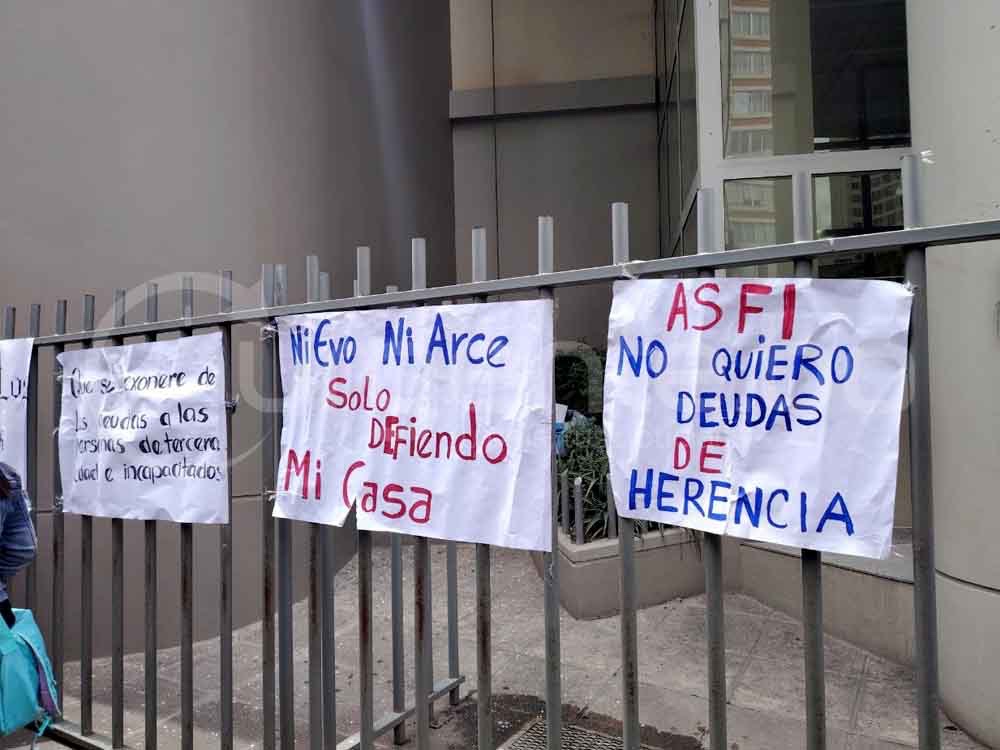 Que se exonere de
las deudas a las
personas de tercera
edad e incapacitados
Ni Evo Ni Arce
Solo
DEFiendo
Mi Casa
ASFI
NO QUIERO
DEUDAS
DE
HERENCIA